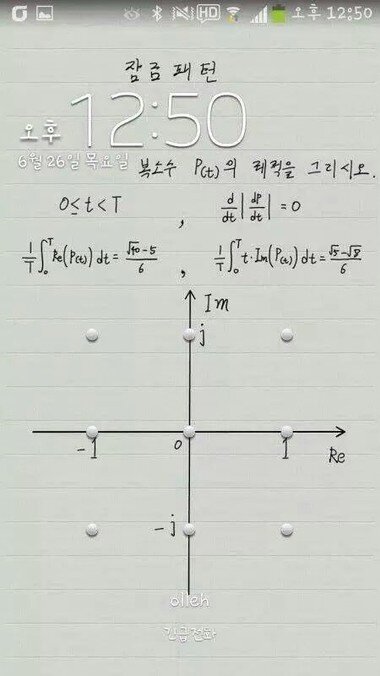 HD 오후 12:50
잠금 패턴
오후 12:50
6월 26일 목요일
복소수 P(t)의 궤적을 그리시오.
0≤t<T , d/dt |dP/dt| = 0
1/T ∫₀ᵀ Re(P(t)) dt = (√40-5)/6 , 1/T ∫₀ᵀ t·Im(P(t)) dt = (√5-√8)/6
Im
j
-1 0 1
Re
-j
olleh
긴급전화